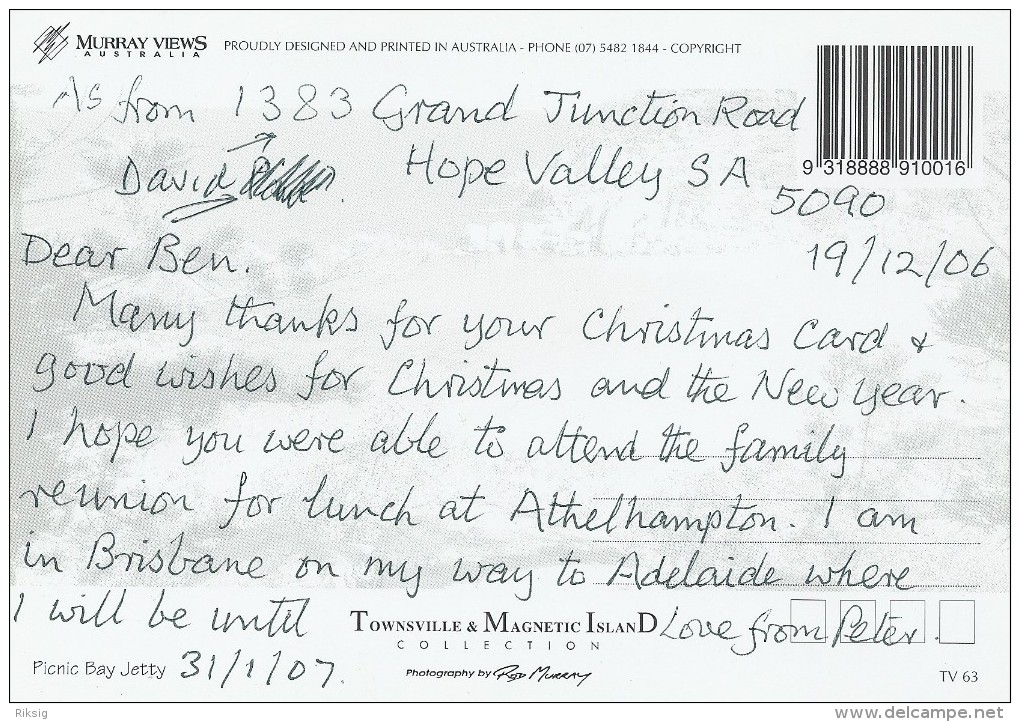 MURRAY VIEWS
AUSTRALIA
PROUDLY DESIGNED AND PRINTED IN AUSTRALIA - PHONE (07) 5482 1844 - COPYRIGHT
As from 1383 Grand Junction Road
David Hope Valley SA
5090
9 318888 910016
Dear Ben. 19/12/06
Many thanks for your Christmas Card &
good wishes for Christmas and the New Year.
I hope you were able to attend the family
reunion for lunch at Athelhampton. I am
in Brisbane on my way to Adelaide where
I will be until
31/1/07.
Love from Peter.
TOWNSVILLE & MAGNETIC ISLAND
COLLECTION
Picnic Bay Jetty
Photography by Rod Murray
TV 63
Riksig
www.delcampe.net